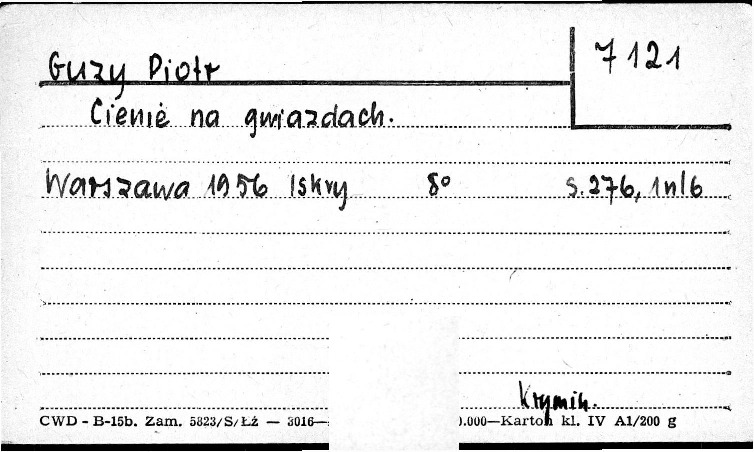 7121
Guzy Piotr
Cienie na gwiazdach.
Warszawa 1956 Iskry 8° s.276, 1nlb
Krymin.
CWD - B-15b. Zam. 5823/S/Łż — 3016— 0.000—Karton kl. IV A1/200 g